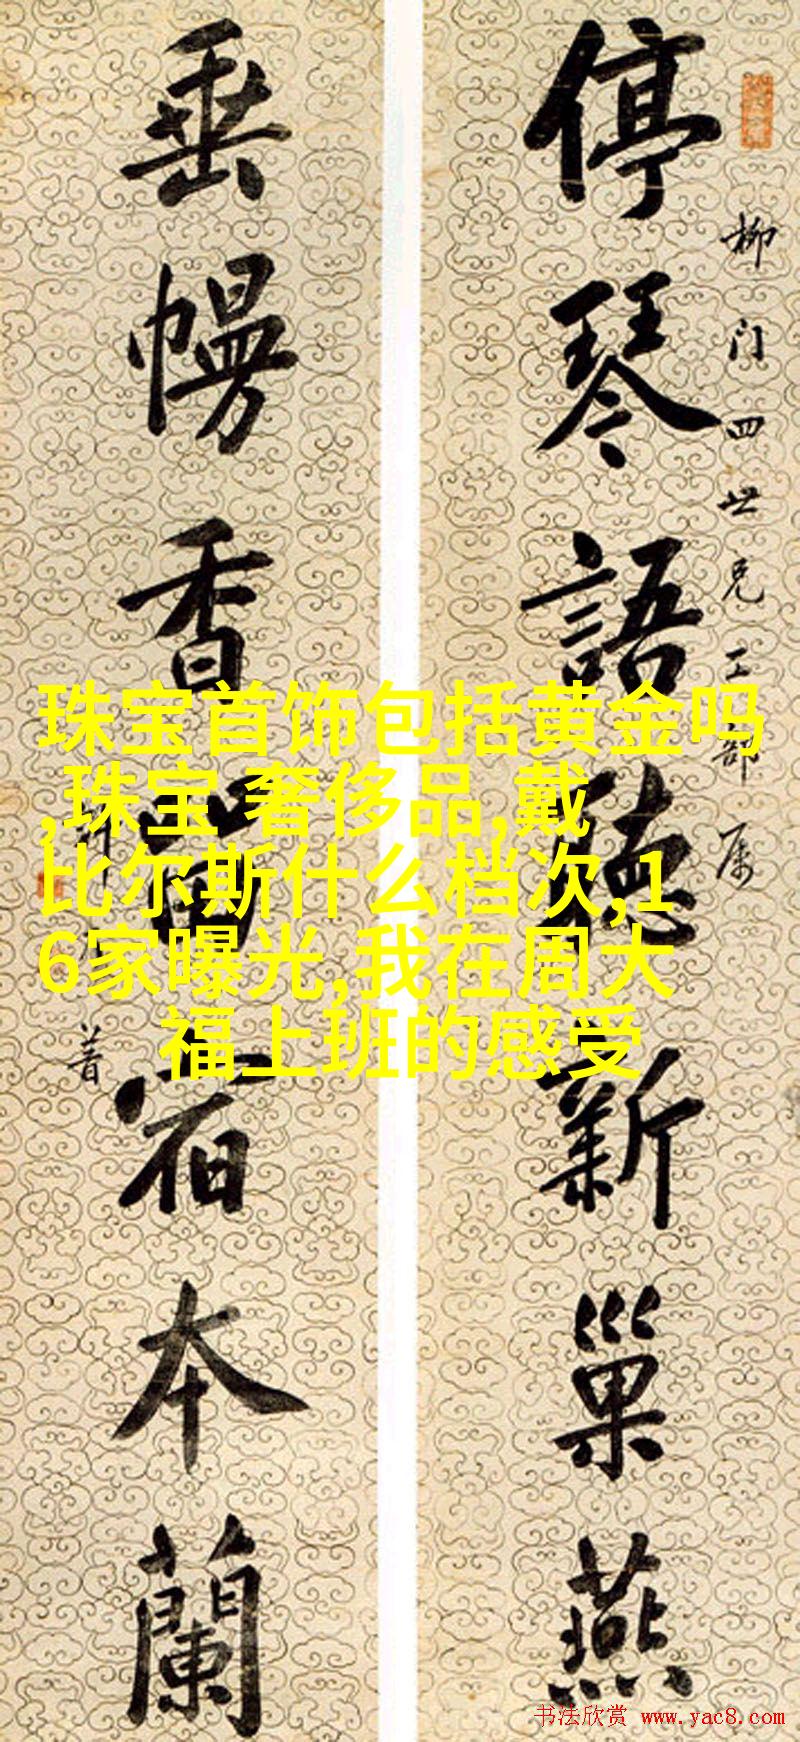 停琴語聽新巢燕
柳门四世兄工部属
垂幔香留宿本蘭
珠宝首饰包括黄金吗
,珠宝 奢侈品,戴
比尔斯什么档次,1
6家曝光,我在周大
福上班的感受
书法欣赏 www.yac8.com